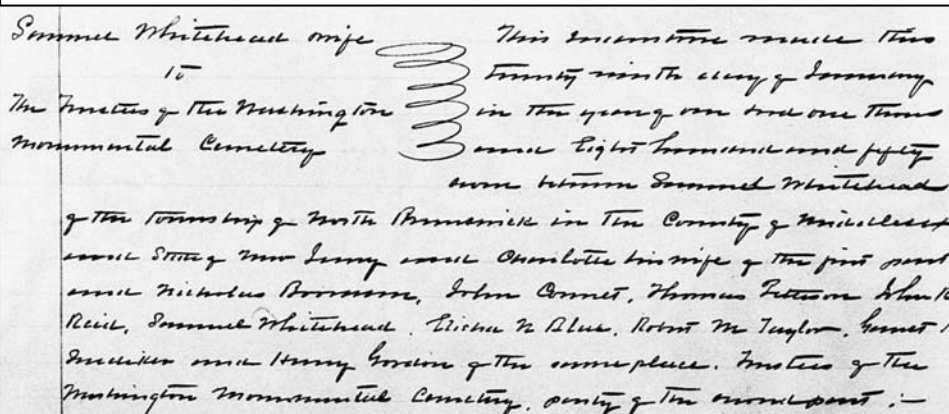 Samuel Whitehead wife
to
The Trustees of the Washington
Monumental Cemetery
This Indenture made this
twenty ninth day of January
in the year of our Lord one thous
and Eight hundred and fifty
between Samuel Whitehead
of the Township of North Brunswick in the County of Middlesex
and State of New Jersey and Charlotte his wife of the first part
and Nicholas Booraem, John Connet, Thomas Peterson John
Reid, Samuel Whitehead, Elisha N Blue, Robert M Taylor, Garret
Snediker and Henry Gordon of the same place. Trustees of the
Washington Monumental Cemetery, party of the second part :—